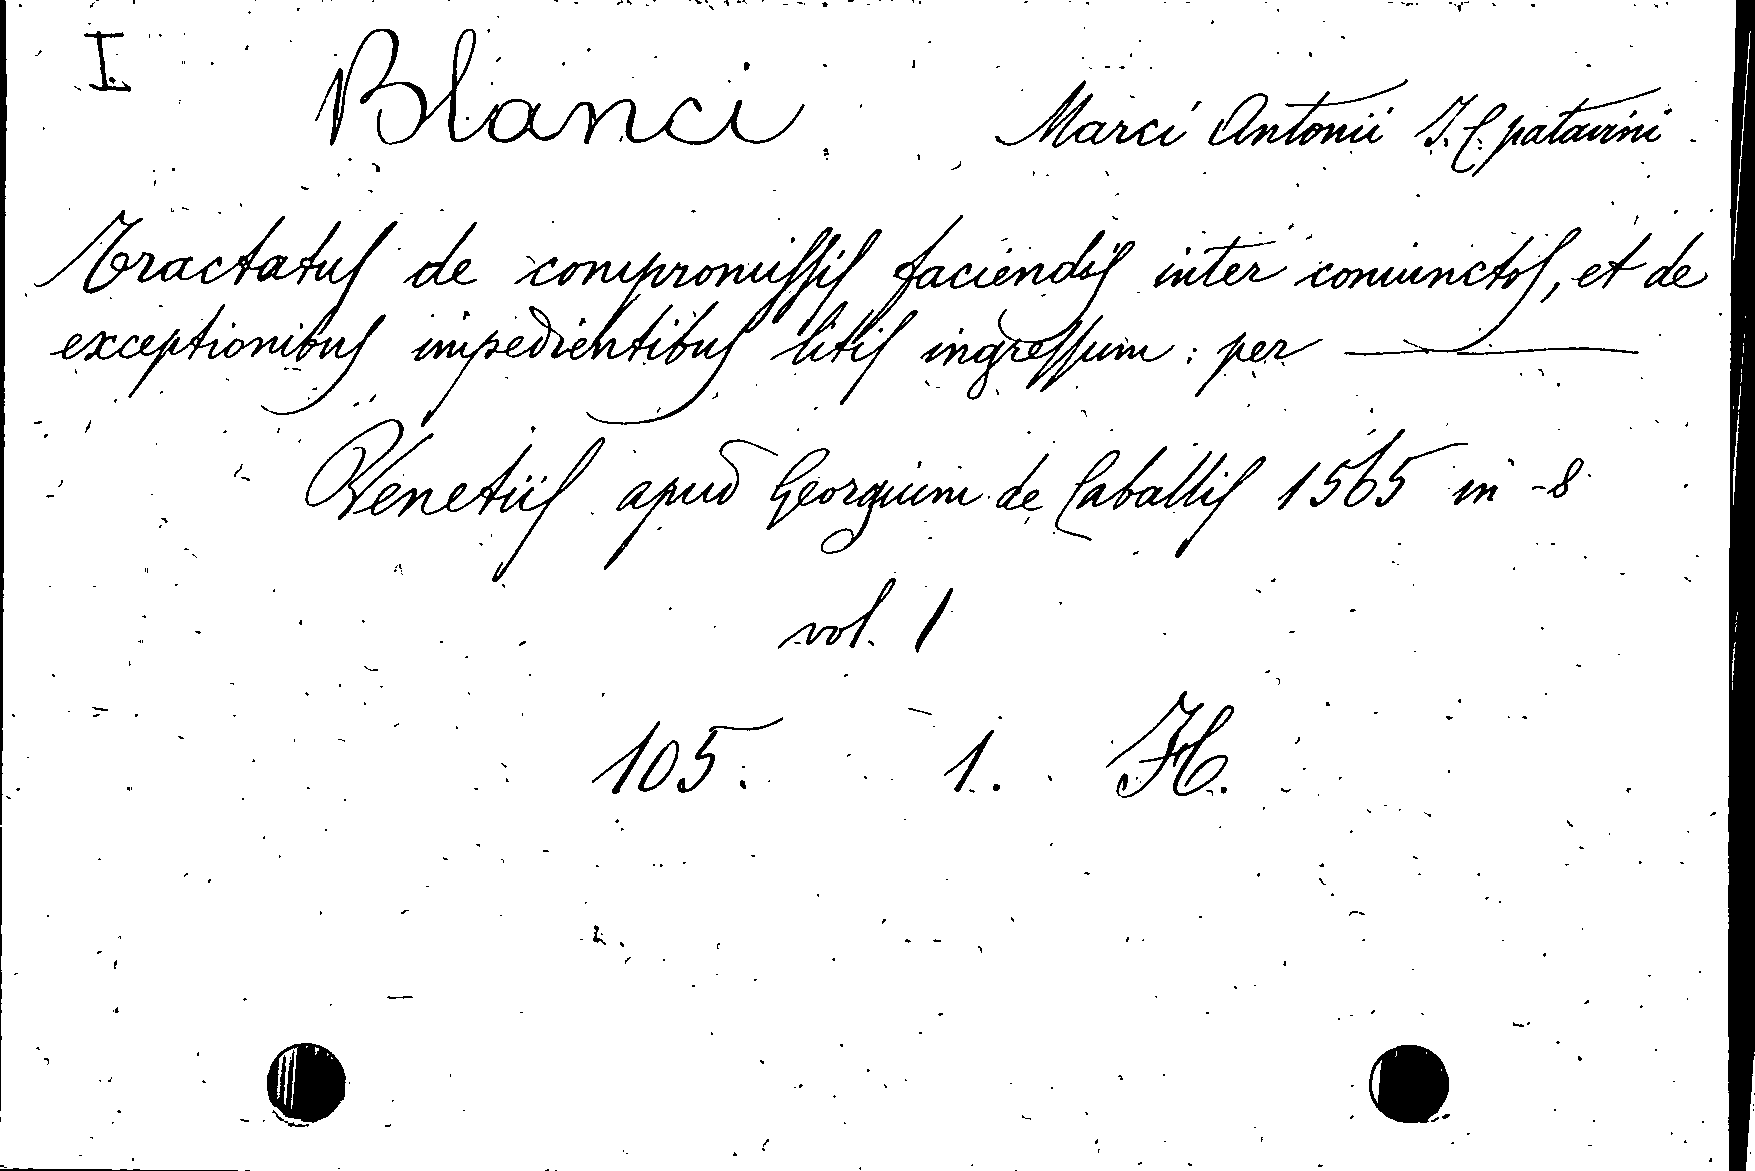 I.
Blanci Marci Antonii J. C. patavini
Tractatus de compromissis faciendis inter coniunctos, et de
exceptionibus impedientibus litis ingressum: per
Venetiis apud Georgium de Caballis 1565 in-8
vol. 1
105. 1. H.